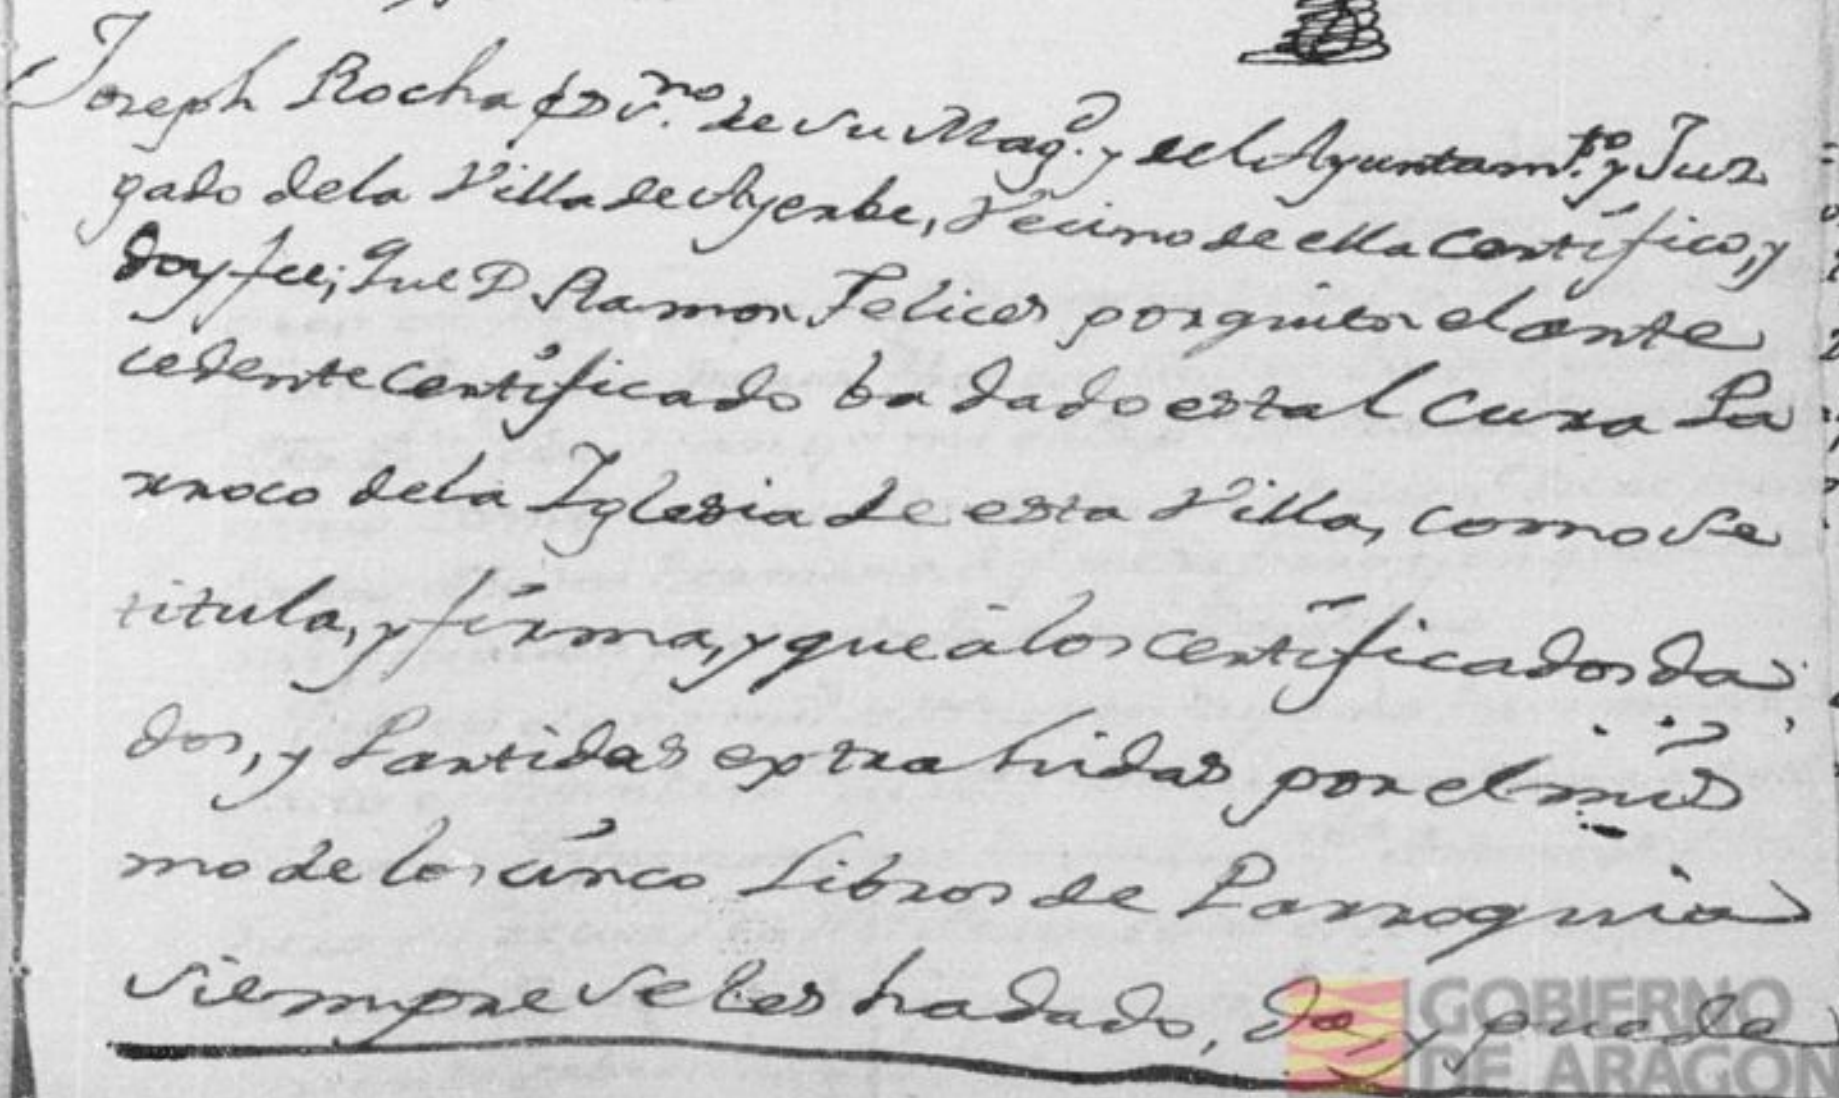 Joseph Rocha esv.no de su Mag.d y del Ayuntam.to y Juz
gado dela Villa de Ayerbe, Vecino de ella Certifico, y
doy fee; Que D Ramon Felices por quien el ante
cedente Certificado ba dado es tal Cura Pa
rroco dela Iglesia de esta Villa, como se
titula, y firma, y que à los Certificados da
dos, y Partidas extrahidas por el mis
mo de los cinco Libros de Parroquia
siempre se les ha dado, da, y puede
GOBIERNO
DE ARAGON